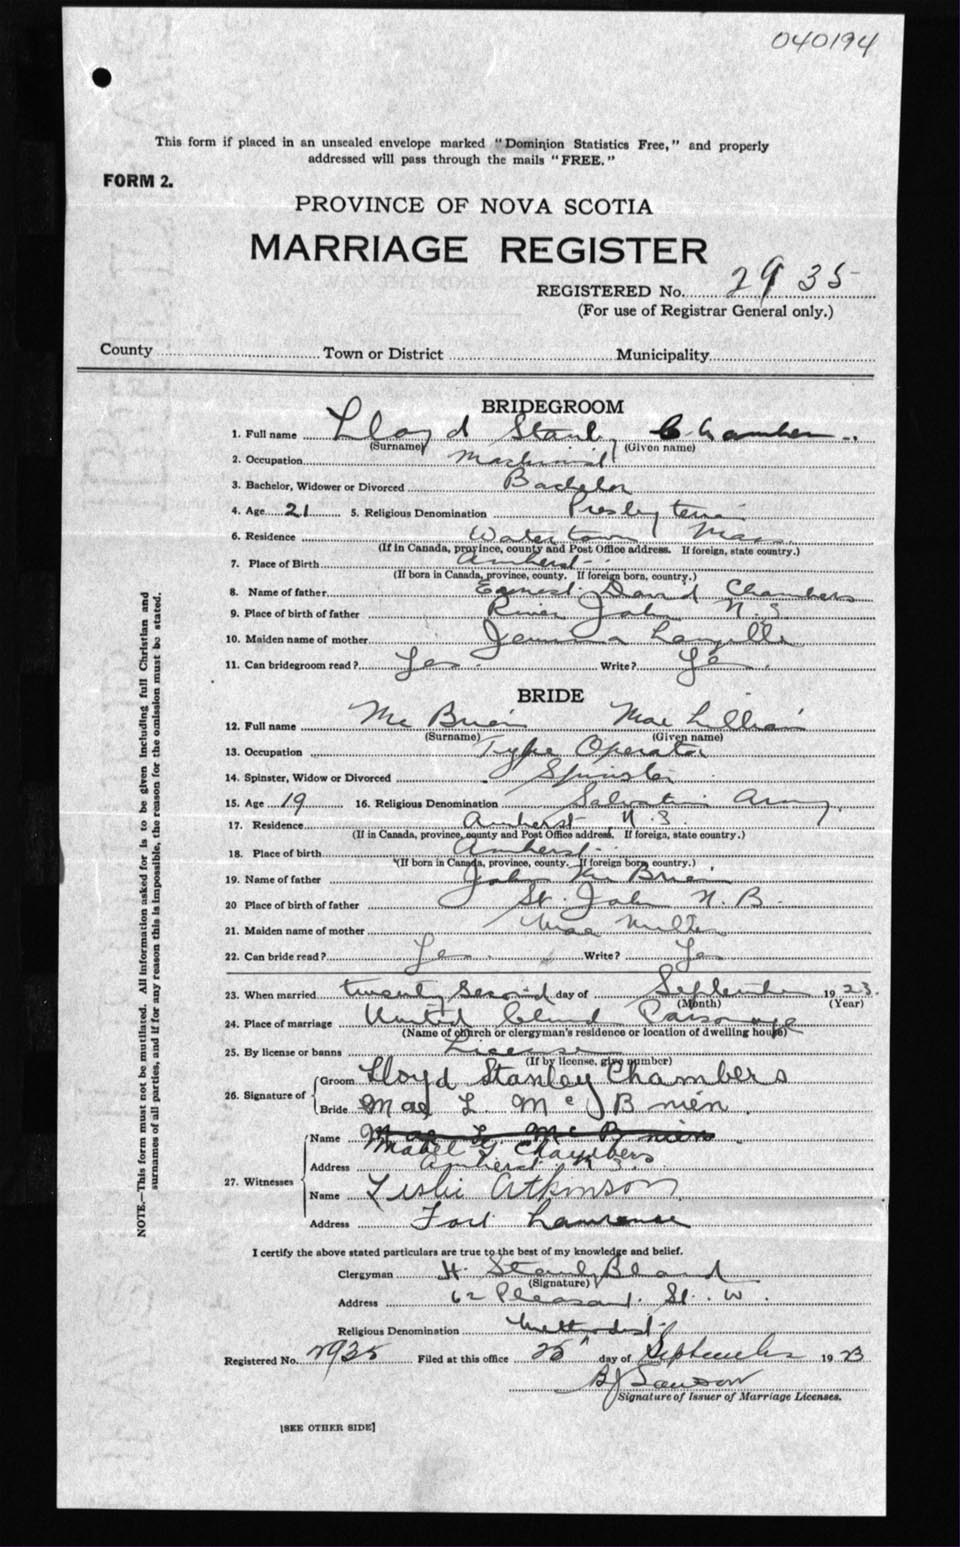 040194
This form if placed in an unsealed envelope marked "Dominion Statistics Free," and properly
addressed will pass through the mails "FREE."
FORM 2.
PROVINCE OF NOVA SCOTIA
MARRIAGE REGISTER
REGISTERED No. 2935
(For use of Registrar General only.)
County Town or District Municipality
BRIDEGROOM
1. Full name Lloyd Stanley Chambers
(Surname) (Given name)
2. Occupation Machinist
3. Bachelor, Widower or Divorced Bachelor
4. Age 21 5. Religious Denomination Presbyterian
6. Residence Watertown Mass.
(If in Canada, province, county and Post Office address. If foreign, state country.)
7. Place of Birth Amherst
(If born in Canada, province, county. If foreign born, country.)
8. Name of father Earnest David Chambers
9. Place of birth of father River John N.S
10. Maiden name of mother Jemima Langille
11. Can bridegroom read? Yes. Write? Yes.
BRIDE
12. Full name Mc Brien Mae Lillian
(Surname) (Given name)
13. Occupation Type Operator
14. Spinster, Widow or Divorced Spinster
15. Age 19 16. Religious Denomination Salvation Army.
17. Residence Amherst N.S
(If in Canada, province, county and Post Office address. If foreign, state country.)
18. Place of birth Amherst
(If born in Canada, province, county. If foreign born country.)
19. Name of father John Mc Brien
20 Place of birth of father St. John N.B.
21. Maiden name of mother Mae
22. Can bride read? Yes. Write? Yes
23. When married twenty second day of September 1923.
(Month) (Year)
24. Place of marriage United Church Parsonage
(Name of church or clergyman's residence or location of dwelling house)
25. By license or banns License
(If by license, give number)
26. Signature of Groom Lloyd Stanley Chambers
Bride Mae L. McBrien.
Name Mae L. McBrien
Mabel Chambers
Address Amherst N.S.
27. Witnesses
Name Leslie Atkinson
Address Fort Lawrence
I certify the above stated particulars are true to the best of my knowledge and belief.
Clergyman H. Stanley Bland
(Signature)
Address 62 Pleasant St. W.
Religious Denomination Methodist
Registered No. 2935 Filed at this office 25 day of September 1923
Signature of Issuer of Marriage Licenses.
[SEE OTHER SIDE]
NOTE.—This form must not be mutilated. All information asked for is to be given including full Christian and
surnames of all parties, and if for any reason this is impossible, the reason for the omission must be stated.